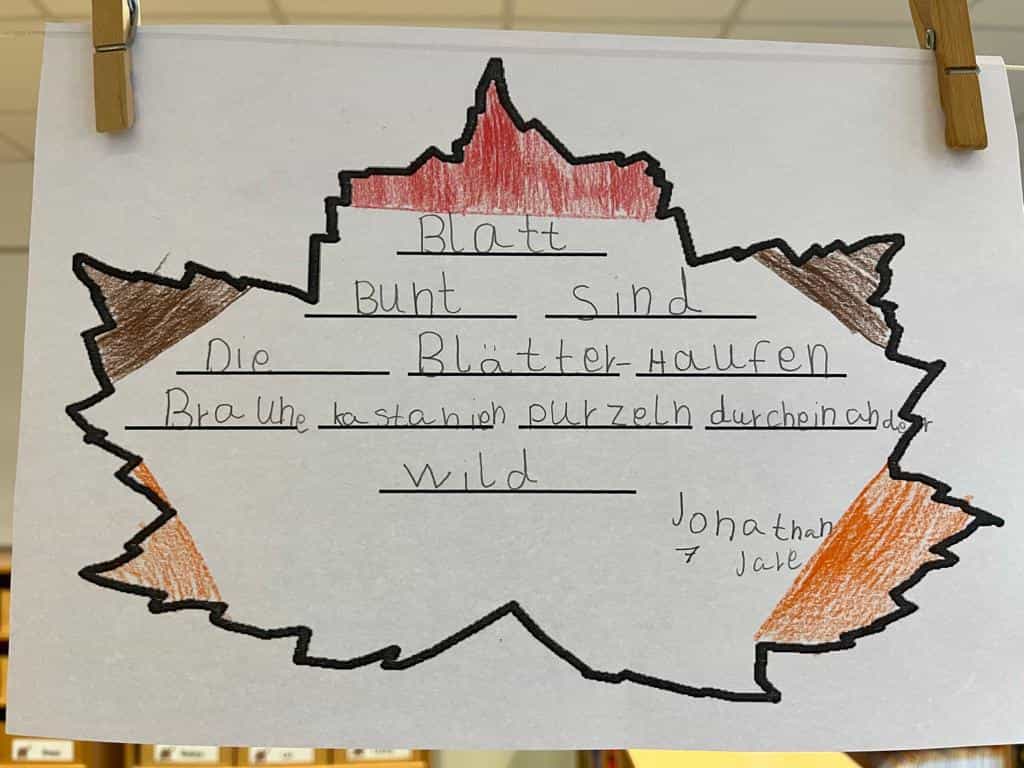 Blatt
Bunt sind
Die Blätter-Haufen
Braune kastanien purzeln durcheinander
wild
Jonathan
7 Jare